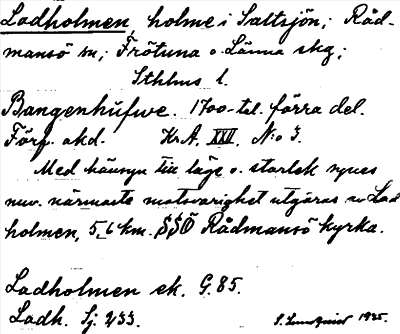 Ladholmen holme i Saltsjön; Råd-
mansö sn; Frötuna o. Länna skg;
Sthlms l.
Bangenhufwe. 1700-tal. förra del.
Förf. okd. Kr.A. XXII. N:o 3.
Med hänsyn till läge o. storlek synes
nuv. närmaste motsvarighet utgöras av Lad
holmen, 5,6 km. SSÖ Rådmansö kyrka.
Ladholmen ek. G. 85.
Ladh. Sj. 233. S. Lundqvist 1925.